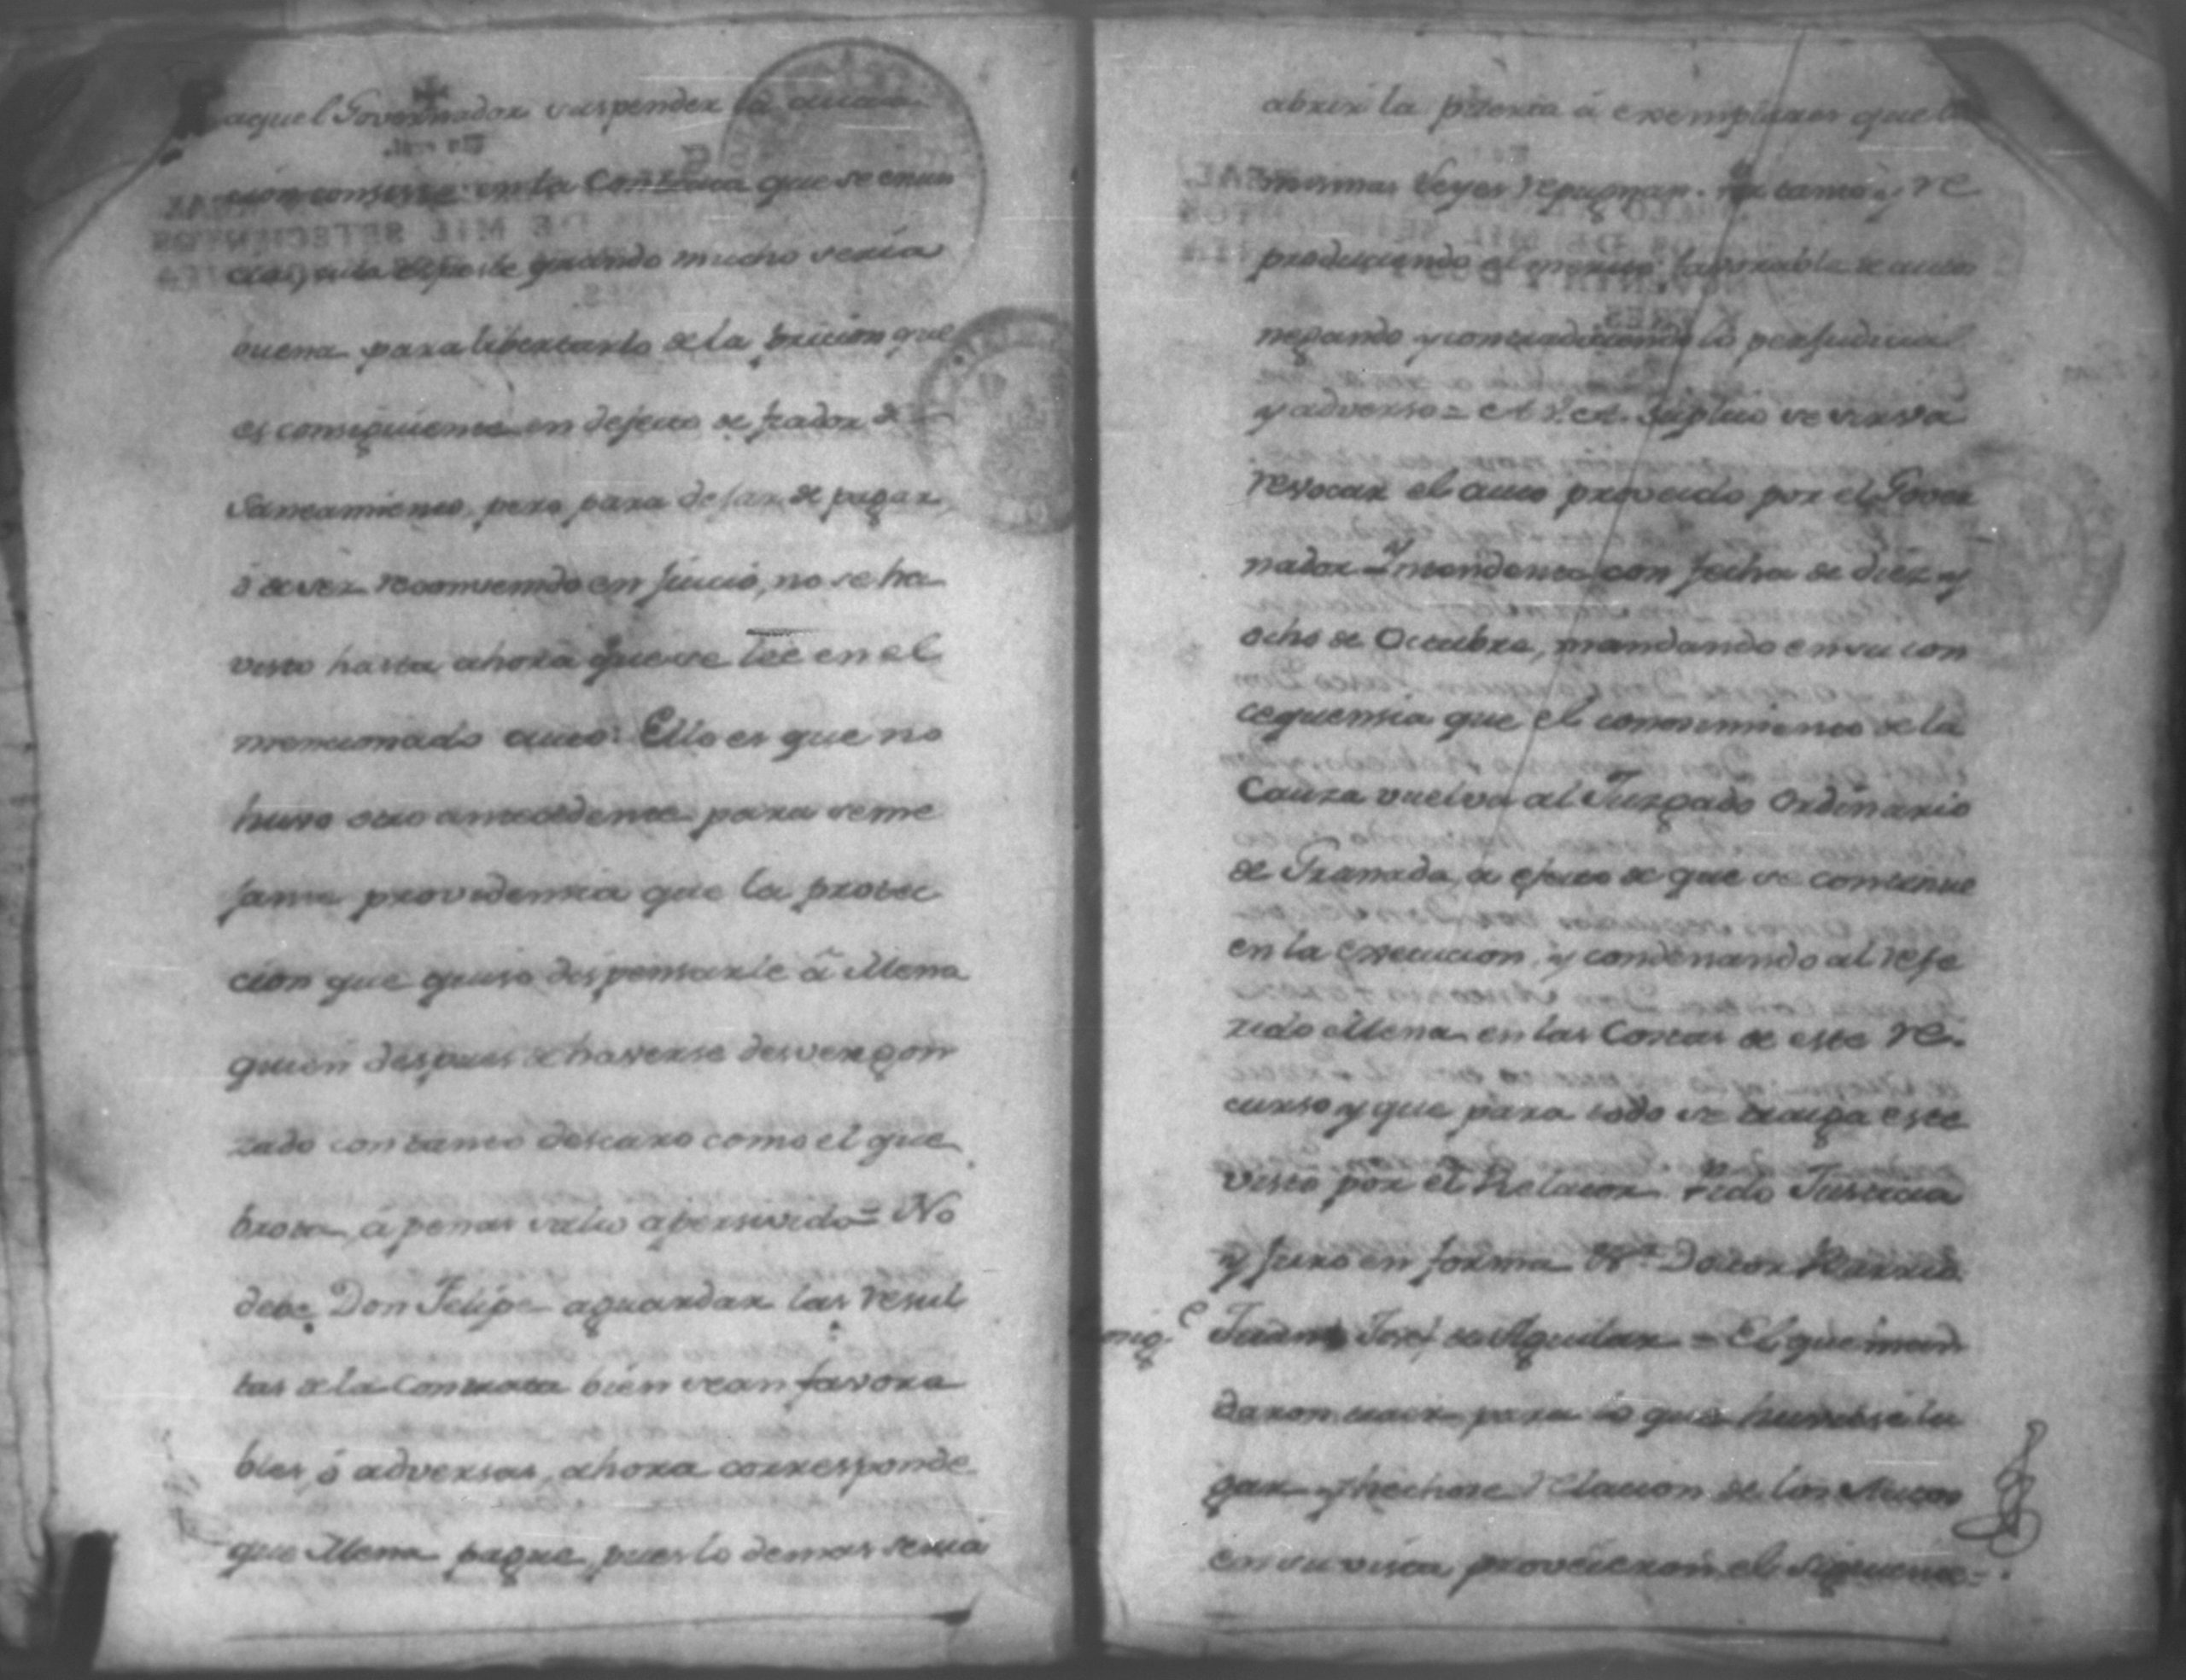 aquel Governador suspender la
en la Contrata que se enun
quando mucho seria
buena para libertarlo de la pricion que
es consiguiente en defecto de fiador de
Saneamiento, pero para dejar de pagar,
ó de ser reconvenido en juicio, no se ha
visto hasta ahora que se leé en el
mencionado auto: Ello es que no
huvo otro antecedente para seme
jante providencia que la protec
cion que quiso dispensarle á Mena
quien despues de haverse desvergon
zado con tanto descaro como el que
brota, á penas salio apersivido = No
debe Don Felipe aguardar las resul
tas de la Contrata bien sean favora
bles, ó adversas, ahora corresponde
que Mena pague, pues lo demas seria
abrir la puerta á exemplares que las
mismas Leyes repugnan. Por tanto y re
produciendo el merito favorable de autos
negando y contradiciendo lo perjudicial
y adverso = A V.A. suplico se sirva
revocar el auto proveido por el Gover
nador Yntendente con fecha de diez y
ocho de Octubre, mandando en su con
cequensia que el conocimiento de la
Causa vuelva al Juzgado Ordinario
de Granada, á efecto de que se continue
en la execucion, y condenando al refe
rido Mena en las Costas de este re-
curso y que para todo se traiga este
visto por el Relator. Pido Justicia
y juro en forma Doctor
Juan Josef de Aguilar = El que man
daron traer para lo que huviese lu
gar y hechose relacion de los Autos
en su vista proveieron el siguiente =